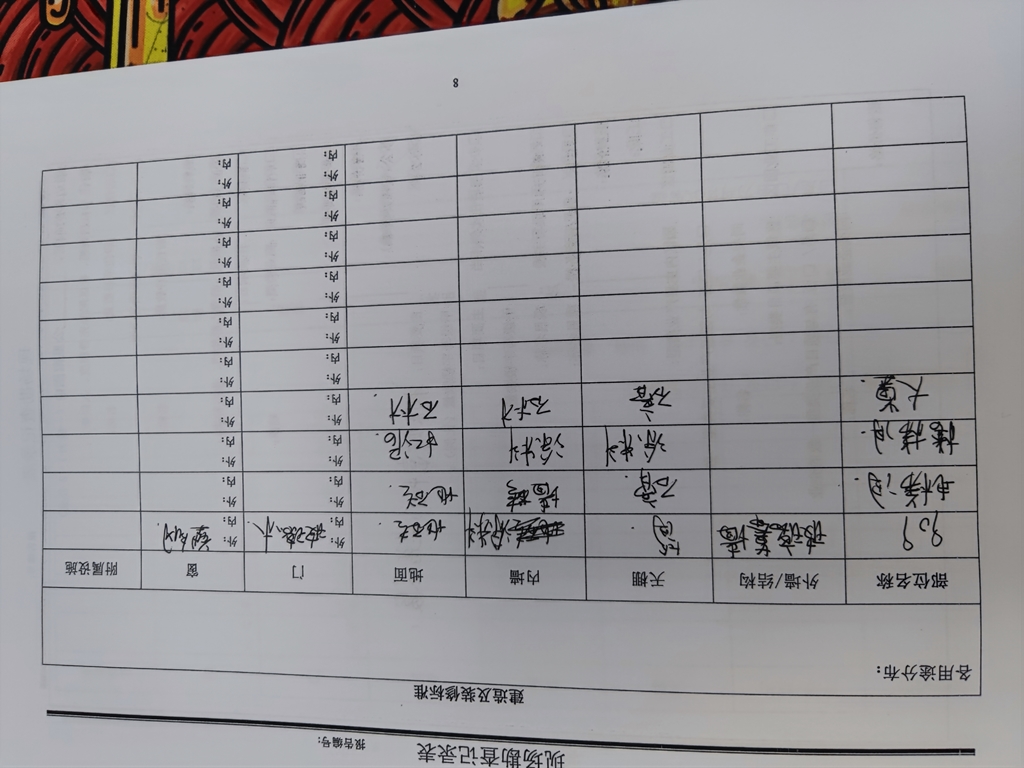 现场勘查记录表
报告编号:
建造及装修标准
各用途分布:
部位名称 外墙/结构 天棚 内墙 地面 门 窗 附属设施
玻璃幕墙 涂料 地砖 外: 外:
内: 内:
电梯间 石膏 墙砖 地砖 外: 外:
内: 内:
楼梯间 涂料 涂料 水泥 外: 外:
内: 内:
大堂 石膏 石材 石材 外: 外:
内: 内:
外: 外:
内: 内:
外: 外:
内: 内:
外: 外:
内: 内:
外: 外:
内: 内:
外: 外:
内: 内:
外: 外:
内: 内:
8